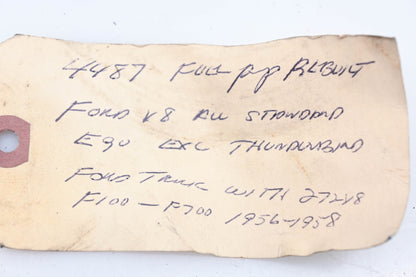 4487 FUEL pp REBUILT
FORD V8 ALL STANDARD
EQU EXC THUNDERBIRD
FORD TRUCK WITH 272V8
F100-F700 1956-1958